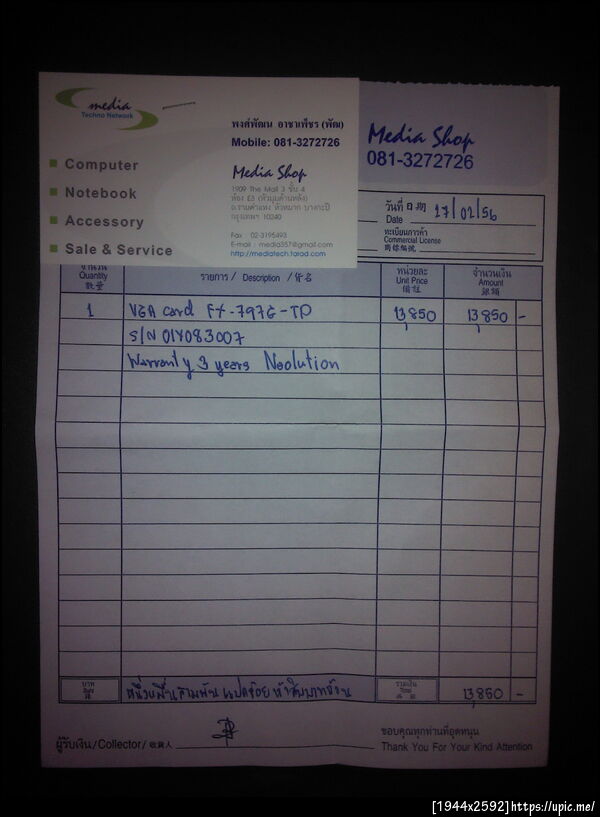 media
Techno Network
พงศ์พัฒน อาชาเพ็ชร (พัฒ)
Mobile: 081-3272726
Computer
Notebook
Accessory
Sale & Service
Media Shop
1909 The Mall 3 ชั้น 4
ห้อง E5 (หัวมุมด้านหลัง)
ถ.รามคำแหง หัวหมาก บางกะปิ
กรุงเทพฯ 10240
Fax 02-3195493
E-mail : media357@gmail.com
http://mediatech.tarad.com
Media Shop
081-3272726
วันที่ 日期
Date 27/02/56
ทะเบียนการค้า
Commercial License
จำนวน รายการ / Description / 件名 หน่วยละ จำนวนเงิน
Quantity Unit Price Amount
数量 備註 銀額
1 VGA card FX-797G-TD 13,850 13,850 -
S/N 014083007
Warranty 3 years Neolution
บาท หนึ่งหมื่นสามพันแปดร้อยห้าสิบบาทถ้วน รวมเงิน 13,850 -
Total
ผู้รับเงิน/Collector/收貨人
ขอบคุณทุกท่านที่อุดหนุน
Thank You For Your Kind Attention
[1944x2592]https://upic.me/